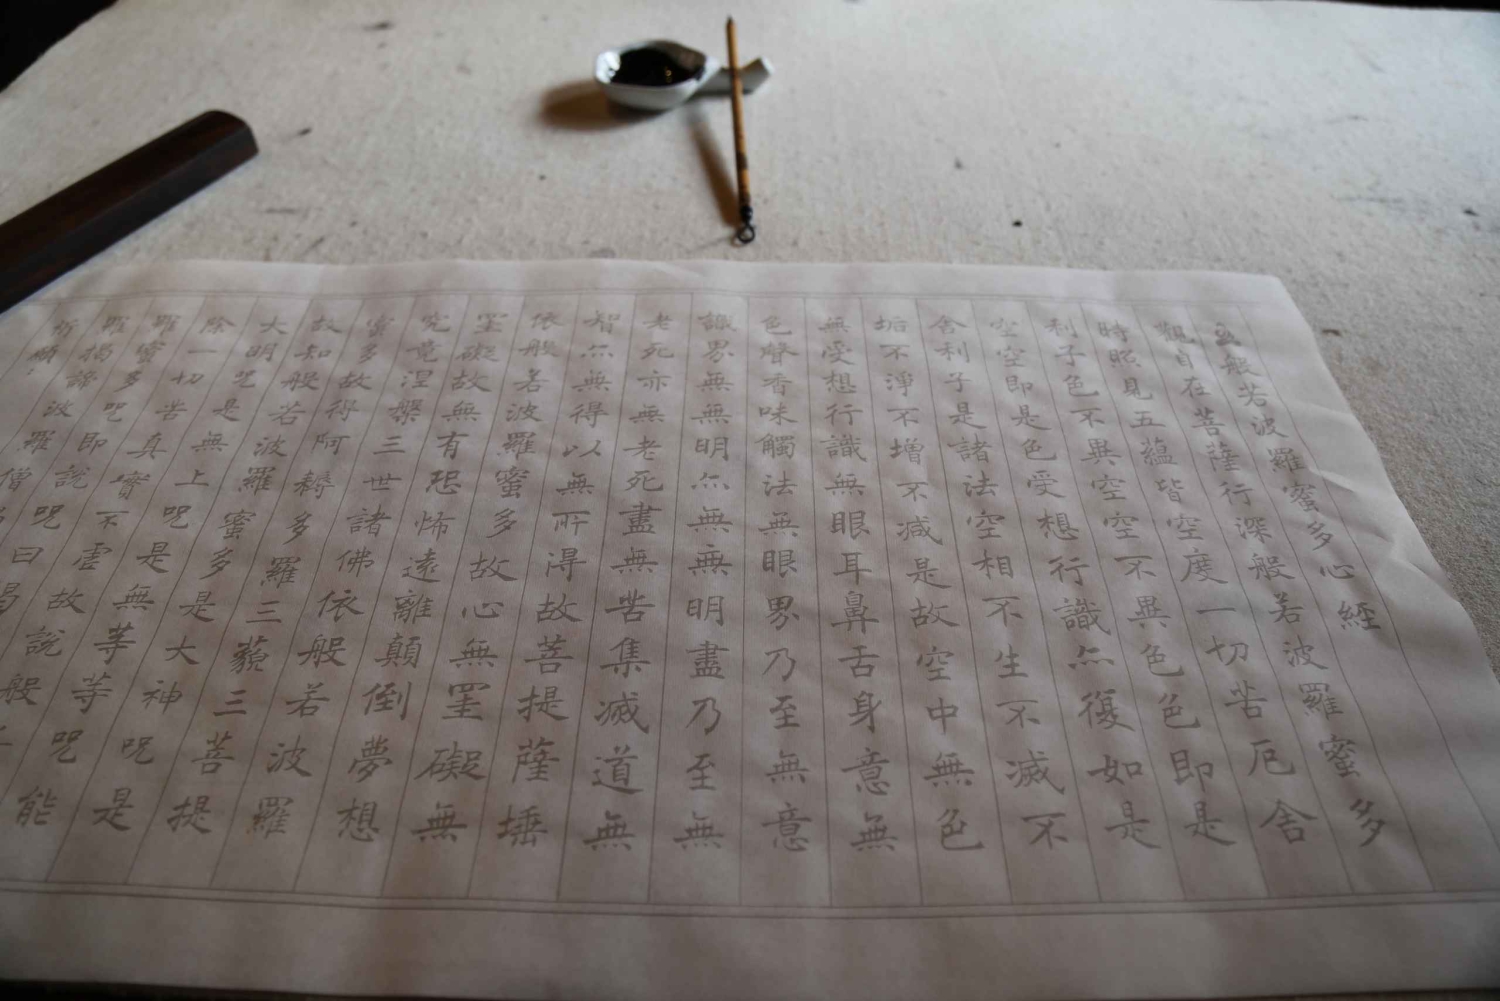 般若波羅蜜多心經
觀自在菩薩行深般若波羅蜜多
時照見五蘊皆空度一切苦厄舍
利子色不異空空不異色色即是
空空即是色受想行識亦復如是
舍利子是諸法空相不生不滅不
垢不淨不增不減是故空中無色
無受想行識無眼耳鼻舌身意無
色聲香味觸法無眼界乃至無意
識界無無明亦無無明盡乃至無
老死亦無老死盡無苦集滅道無
智亦無得以無所得故菩提薩埵
依般若波羅蜜多故心無罣礙無
罣礙故無有恐怖遠離顛倒夢想
究竟涅槃三世諸佛依般若波羅
蜜多故得阿耨多羅三藐三菩提
故知般若波羅蜜多是大神咒是
大明咒是無上咒是無等等咒能
除一切苦真實不虛故說般
羅蜜多咒即說咒曰
羅揭諦波羅僧
祈願: